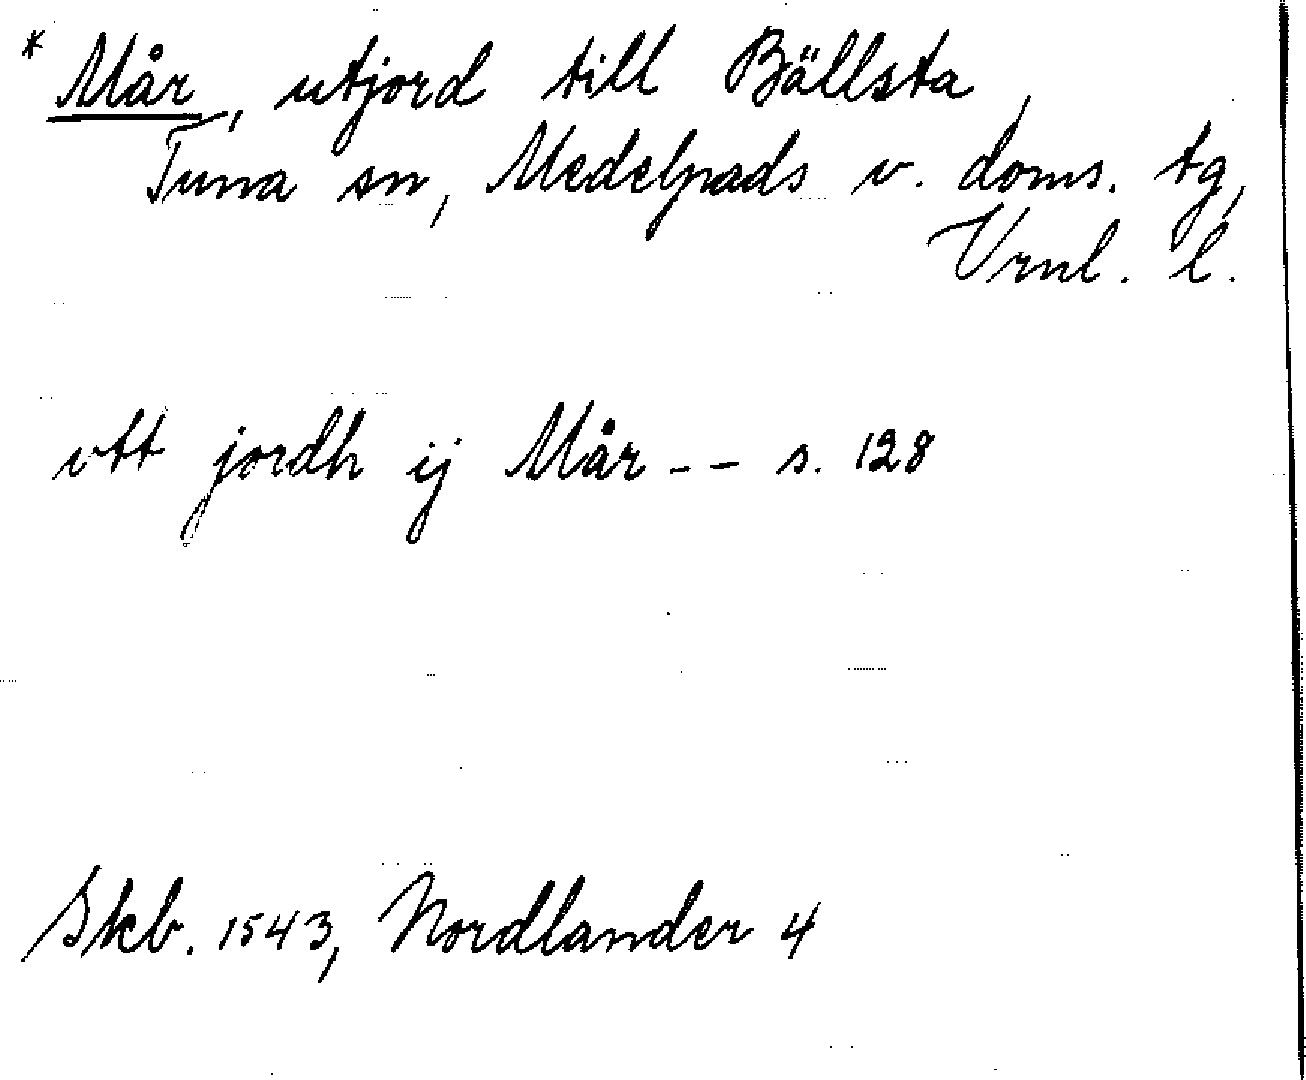 * Mår, utjord till Bällsta,
Tuna sn, Medelpads v. doms. tg,
Vrnl. l.
vtt jordh ij Mår -- s. 128
Skb. 1543, Nordlander 4